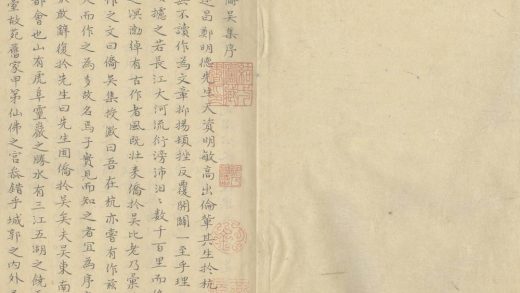 僑吳集序
昌鄭明德先生天資明敏高出倫軰其生扵杭
無不讀作為文章抑揚頓挫反覆開闔一至乎理
據之若長江大河流衍滂沛汩〻數千百里而
之溟渤綽有古作者風既壮来僑扵吳比老乃彙
作之文曰僑吳集授徽曰吾在杭亦嘗有作兹
久而作之為多故名焉子實見而知之者宜為序
敢辭復扵先生曰先生固僑扵吳矣夫吳東南
都會也山有虎阜靈巖之勝水有三江五湖之饒
臺故苑舊家甲第仙佛之宫叅錯乎城郭之内外